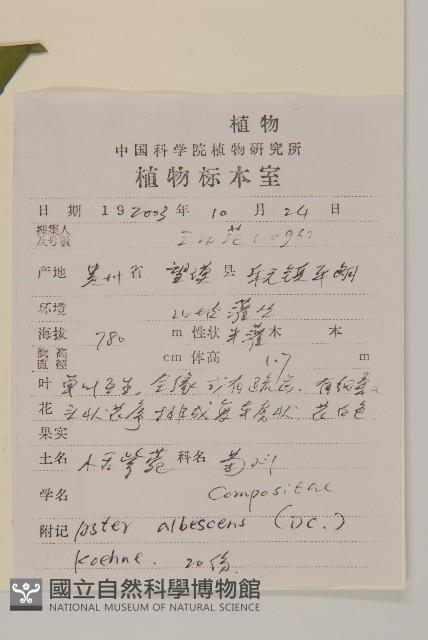 植物
中国科学院植物研究所
植物标本室
日 期 19 2003 年 10 月 24 日
採集人
及号数
产地 贵州 省 望谟 县
环境 山坡 灌丛
海拔 780 m 性状 半灌木 本
胸高
直徑 cm 体高 1.7 m
叶 单叶互生, 全缘或有疏齿.
花 头状花序排成复伞房状. 花白色
果实
土名 小舌紫菀 科名 菊科
学名 Compositae
附记 Aster albescens (DC.)
Koehne. 20份
國立自然科學博物館
NATIONAL MUSEUM OF NATURAL SCIENCE